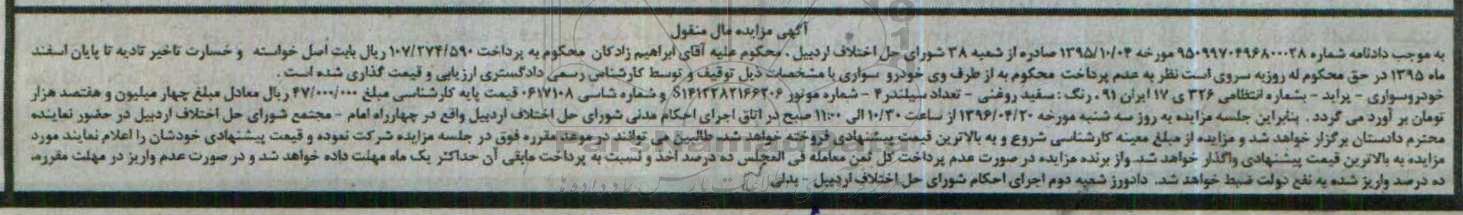 آگهی مزایده مال منقول
به موجب دادنامه شماره ۹۵۰۹۹۷۰۴۹۶۸۰۰۰۲۸ مورخه ۱۳۹۵/۱۰/۰۴ صادره از شعبه ۳۸ شورای حل اختلاف اردبیل . محکوم علیه آقای ابراهیم زادکان محکوم به پرداخت ۱۰۷/۲۷۴/۵۹۰ ریال بابت اصل خواسته و خسارت تاخیر تادیه تا پایان اسفند
ماه ۱۳۹۵ در حق محکوم له روزبه سروی است نظر به عدم پرداخت محکوم به از طرف وی خودرو سواری با مشخصات ذیل توقیف و توسط کارشناس رسمی دادگستری ارزیابی و قیمت گذاری شده است .
خودروسواری - پراید - بشماره انتظامی ۳۲۶ ی ۱۷ ایران ۹۱ . رنگ : سفید روغنی - تعداد سیلندر ۴ - شماره موتور S۱۴۱۲۲۸۲۱۶۶۲۰۶ و شماره شاسی ۰۶۱۷۱۰۸ قیمت پایه کارشناسی مبلغ ۴۷/۰۰۰/۰۰۰ ریال معادل مبلغ چهار میلیون و هفتصد هزار
تومان بر آورد می گردد . بنابراین جلسه مزایده به روز سه شنبه مورخه ۱۳۹۶/۰۴/۲۰ از ساعت ۱۰/۳۰ الی ۱۱:۰۰ صبح در اتاق اجرای احکام مدنی شورای حل اختلاف اردبیل واقع در چهارراه امام - مجتمع شورای حل اختلاف اردبیل در حضور نماینده
محترم دادستان برگزار خواهد شد و مزایده از مبلغ معینه کارشناسی شروع و به بالاترین قیمت پیشنهادی فروخته خواهد شد. طالبین می توانند در موعد مقرره فوق در جلسه مزایده شرکت نموده و قیمت پیشنهادی خودشان را اعلام نمایند مورد
مزایده به بالاترین قیمت پیشنهادی واگذار خواهد شد. واز برنده مزایده در صورت عدم پرداخت کل ثمن معامله فی المجلس ده درصد اخذ و نسبت به پرداخت مابقی آن حداکثر یک ماه مهلت داده خواهد شد و در صورت عدم واریز در مهلت مقرره،
ده درصد واریز شده به نفع دولت ضبط خواهد شد. دادورز شعبه دوم اجرای احکام شورای حل اختلاف اردبیل - بدلی
ParsNamadData